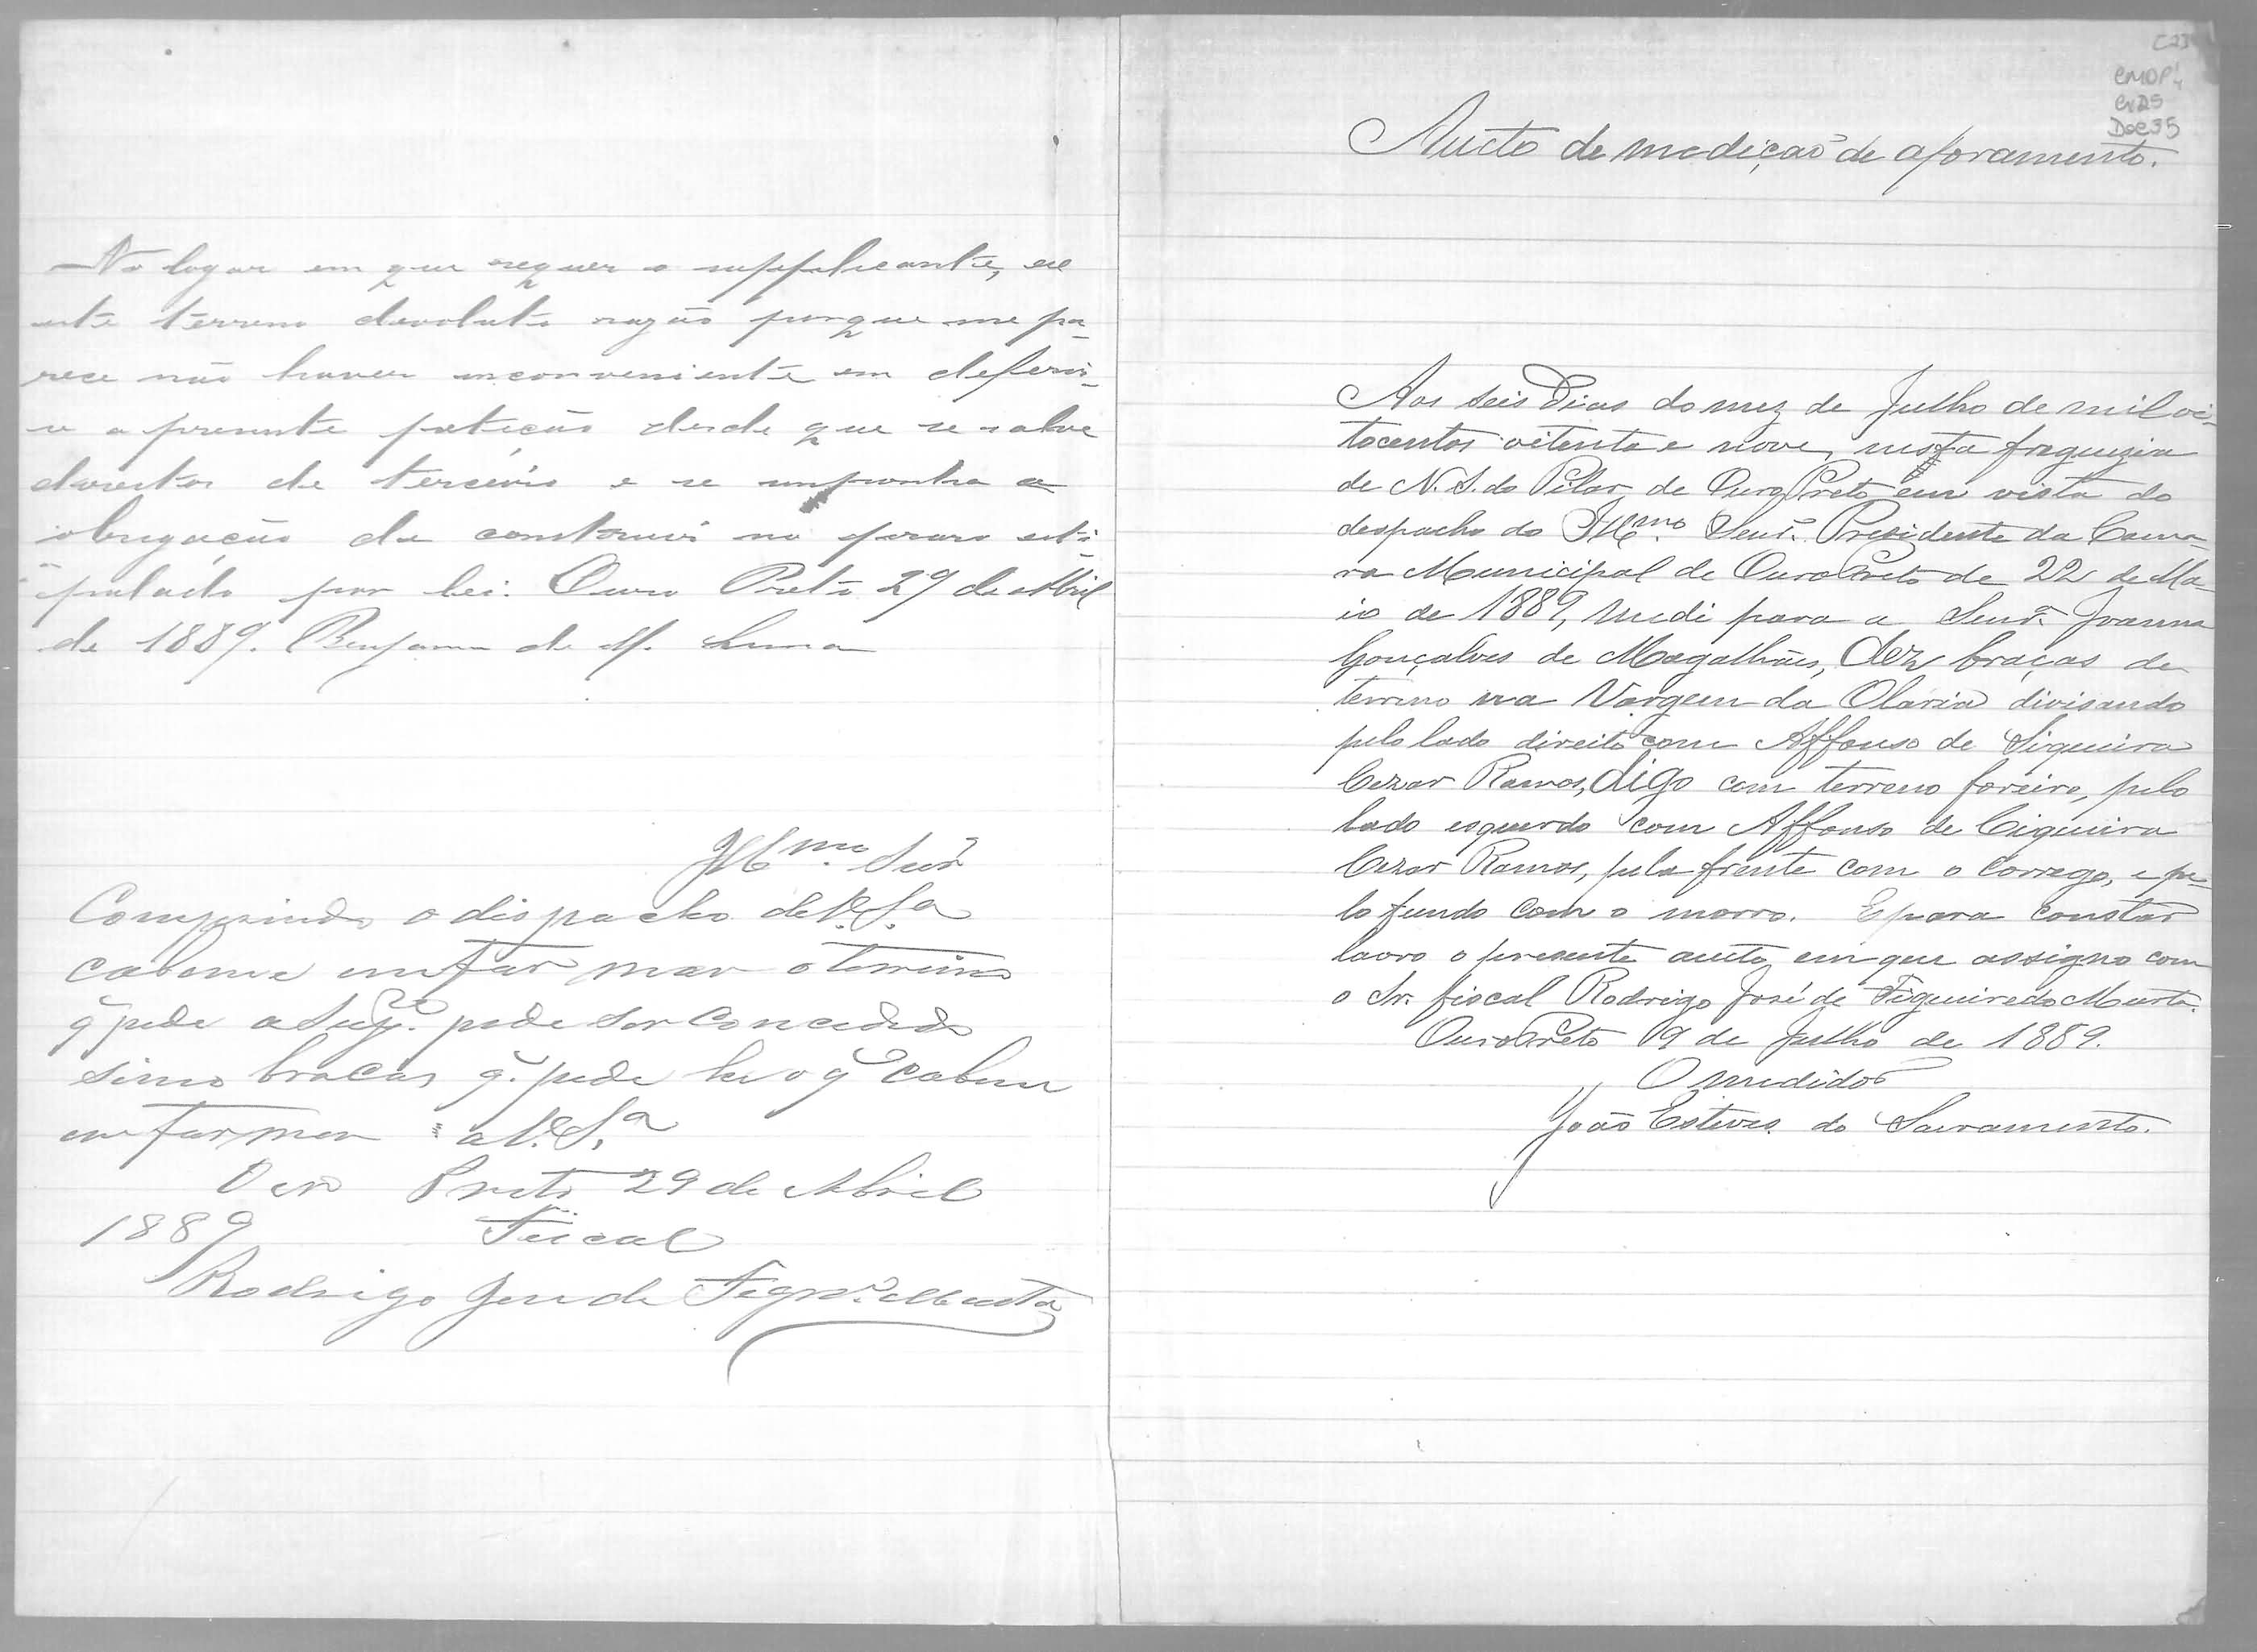 No logar em que requer o supplicante, exi
iste terreno devoluto razão porque me pa-
rece não haver inconveniente em deferir-
se a presente petição desde que se salve
direitos de terceiros e se imponha a
obrigação de construir no praso esti-
pulado por lei. Ouro Preto 29 de Abril
de 1889. Benjamin de M. Lima
Illmo. Snr
Comprindo o dispacho de V. Sa
cabeme emformar o terreino
q̃ pede a Supe. pode ser concedido
sinco bracas q̃ pede he o q̃ cabeme
emformar a V. Sa
Ouro Preto 29 de Abril
1889 Fiscal
Rodrigo Jose de Figrdo. Murta
C23
CMOP
Cx25
Doc35
Aucto de medição de aforamento.
Aos seis Dias do mez de Julho de mil oi-
tocentos oitenta e nove, nesta freguezia
de N. S. do Pilar de Ouro Preto em vista do
despacho do Illmo. Senr. Presidente da Cama-
ra Municipal de Ouro Preto de 22 de Ma-
io de 1889, medi para a Senra. Joanna
Gonçalves de Magalhães, dez braças de
terreno na Vargem da Olaria divisando
pelo lado direito com Affonso de Siqueira
Cezar Ramos, digo com terreno foreiro, pelo
lado esquerdo com Affonso de Ciqueira
Cezar Ramos, pela frente com o corrego, e pe-
lo fundo com o morro. E para constar
lavro o presente aucto em que assigno com
o Sr. fiscal Rodrigo José de Figueiredo Murta.
Ouro Preto 9 de Julho de 1889.
O medidor
João Esteves do Sacramento.